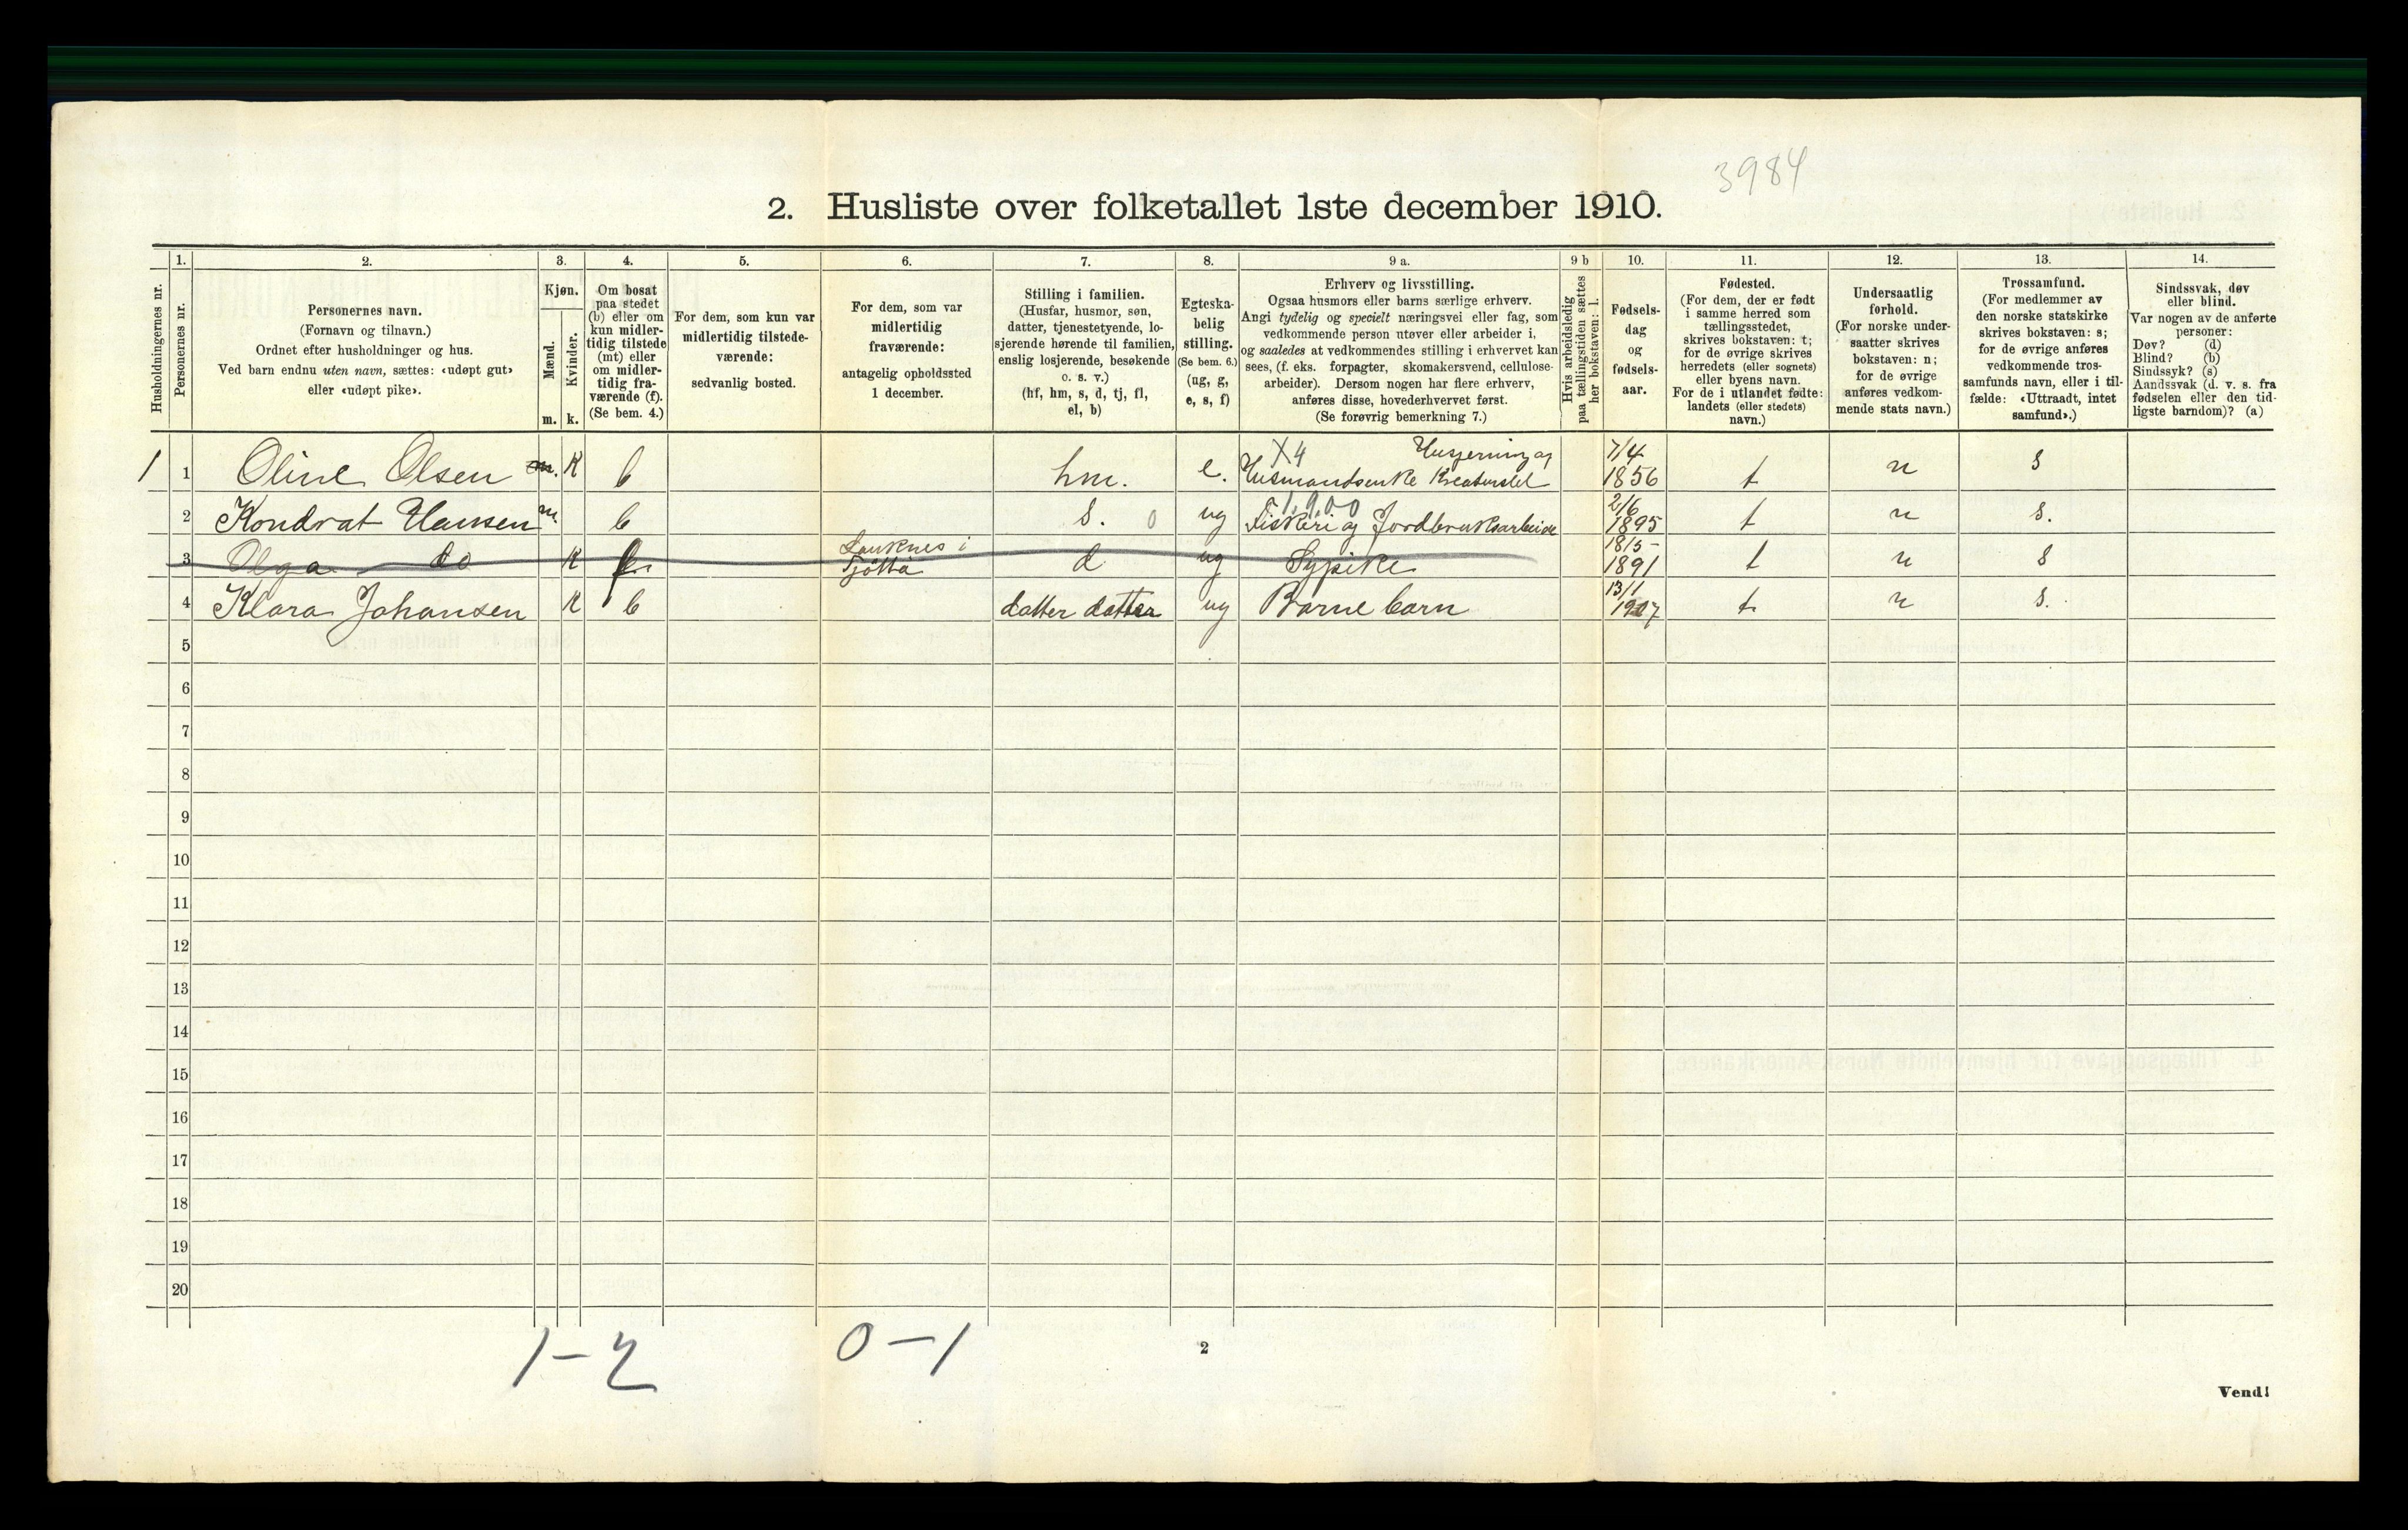 3984
2. Husliste over folketallet 1ste december 1910.
Husholdningernes nr.
1.
Personernes nr.
2.
Personernes navn.
(Fornavn og tilnavn.)
Ordnet efter husholdninger og hus.
Ved barn endnu uten navn, sættes: «udøpt gut»
eller «udøpt pike».
3.
Kjøn.
Mænd.
Kvinder.
m. k.
4.
Om bosat
paa stedet
(b) eller om
kun midler-
tidig tilstede
(mt) eller
om midler-
tidig fra-
værende (f).
(Se bem. 4.)
5.
For dem, som kun var
midlertidig tilstede-
værende:
sedvanlig bosted.
6.
For dem, som var
midlertidig
fraværende:
antagelig opholdssted
1 december.
7.
Stilling i familien.
(Husfar, husmor, søn,
datter, tjenestetyende, lo-
sjerende hørende til familien,
enslig losjerende, besøkende
o. s. v.)
(hf, hm, s, d, tj, fl,
el, b)
8.
Egteska-
belig
stilling.
(Se bem. 6.)
(ug, g,
e, s, f)
9 a.
Erhverv og livsstilling.
Ogsaa husmors eller barns særlige erhverv.
Angi tydelig og specielt næringsvei eller fag, som
vedkommende person utøver eller arbeider i,
og saaledes at vedkommendes stilling i erhvervet kan
sees, (f. eks. forpagter, skomakersvend, cellulose-
arbeider). Dersom nogen har flere erhverv,
anføres disse, hovederhvervet først.
(Se forøvrig bemerkning 7.)
9 b
Hvis arbeidsledig
paa tællingstiden sættes
her bokstaven: l.
10.
Fødsels-
dag
og
fødsels-
aar.
11.
Fødested.
(For dem, der er født
i samme herred som
tællingsstedet,
skrives bokstaven: t;
for de øvrige skrives
herredets (eller sognets)
eller byens navn.
For de i utlandet fødte:
landets (eller stedets)
navn.)
12.
Undersaatlig
forhold.
(For norske under-
saatter skrives
bokstaven: n;
for de øvrige
anføres vedkom-
mende stats navn.)
13.
Trossamfund.
(For medlemmer av
den norske statskirke
skrives bokstaven: s;
for de øvrige anføres
vedkommende tros-
samfunds navn, eller i til-
fælde: «Uttraadt, intet
samfund».)
14.
Sindssvak, døv
eller blind.
Var nogen av de anførte
personer:
Døv? (d)
Blind? (b)
Sindssyk? (s)
Aandssvak (d. v. s. fra
fødselen eller den tid-
ligste barndom)? (a)
X4 Husgerning og 7/4
1 1 Oline Olsen m. K b hm. e. Husmandsenke Kreaturstel 1856 t n s
1.9.00 2/6
2 Kondrat Hansen m. b s. 0 ug Fiskeri og Jordbruksarbeide 1895 t n s.
i 18/5-
3 Olga do K Tjøtta d ug Sypike 1891 t n s
13/1
4 Klara Johansen K b datter datter ug Barnebarn 1907 t. n s.
5
6
7
8
9
10
11
12
13
14
15
16
17
18
19
20
1-2 0-1
2
Vend!